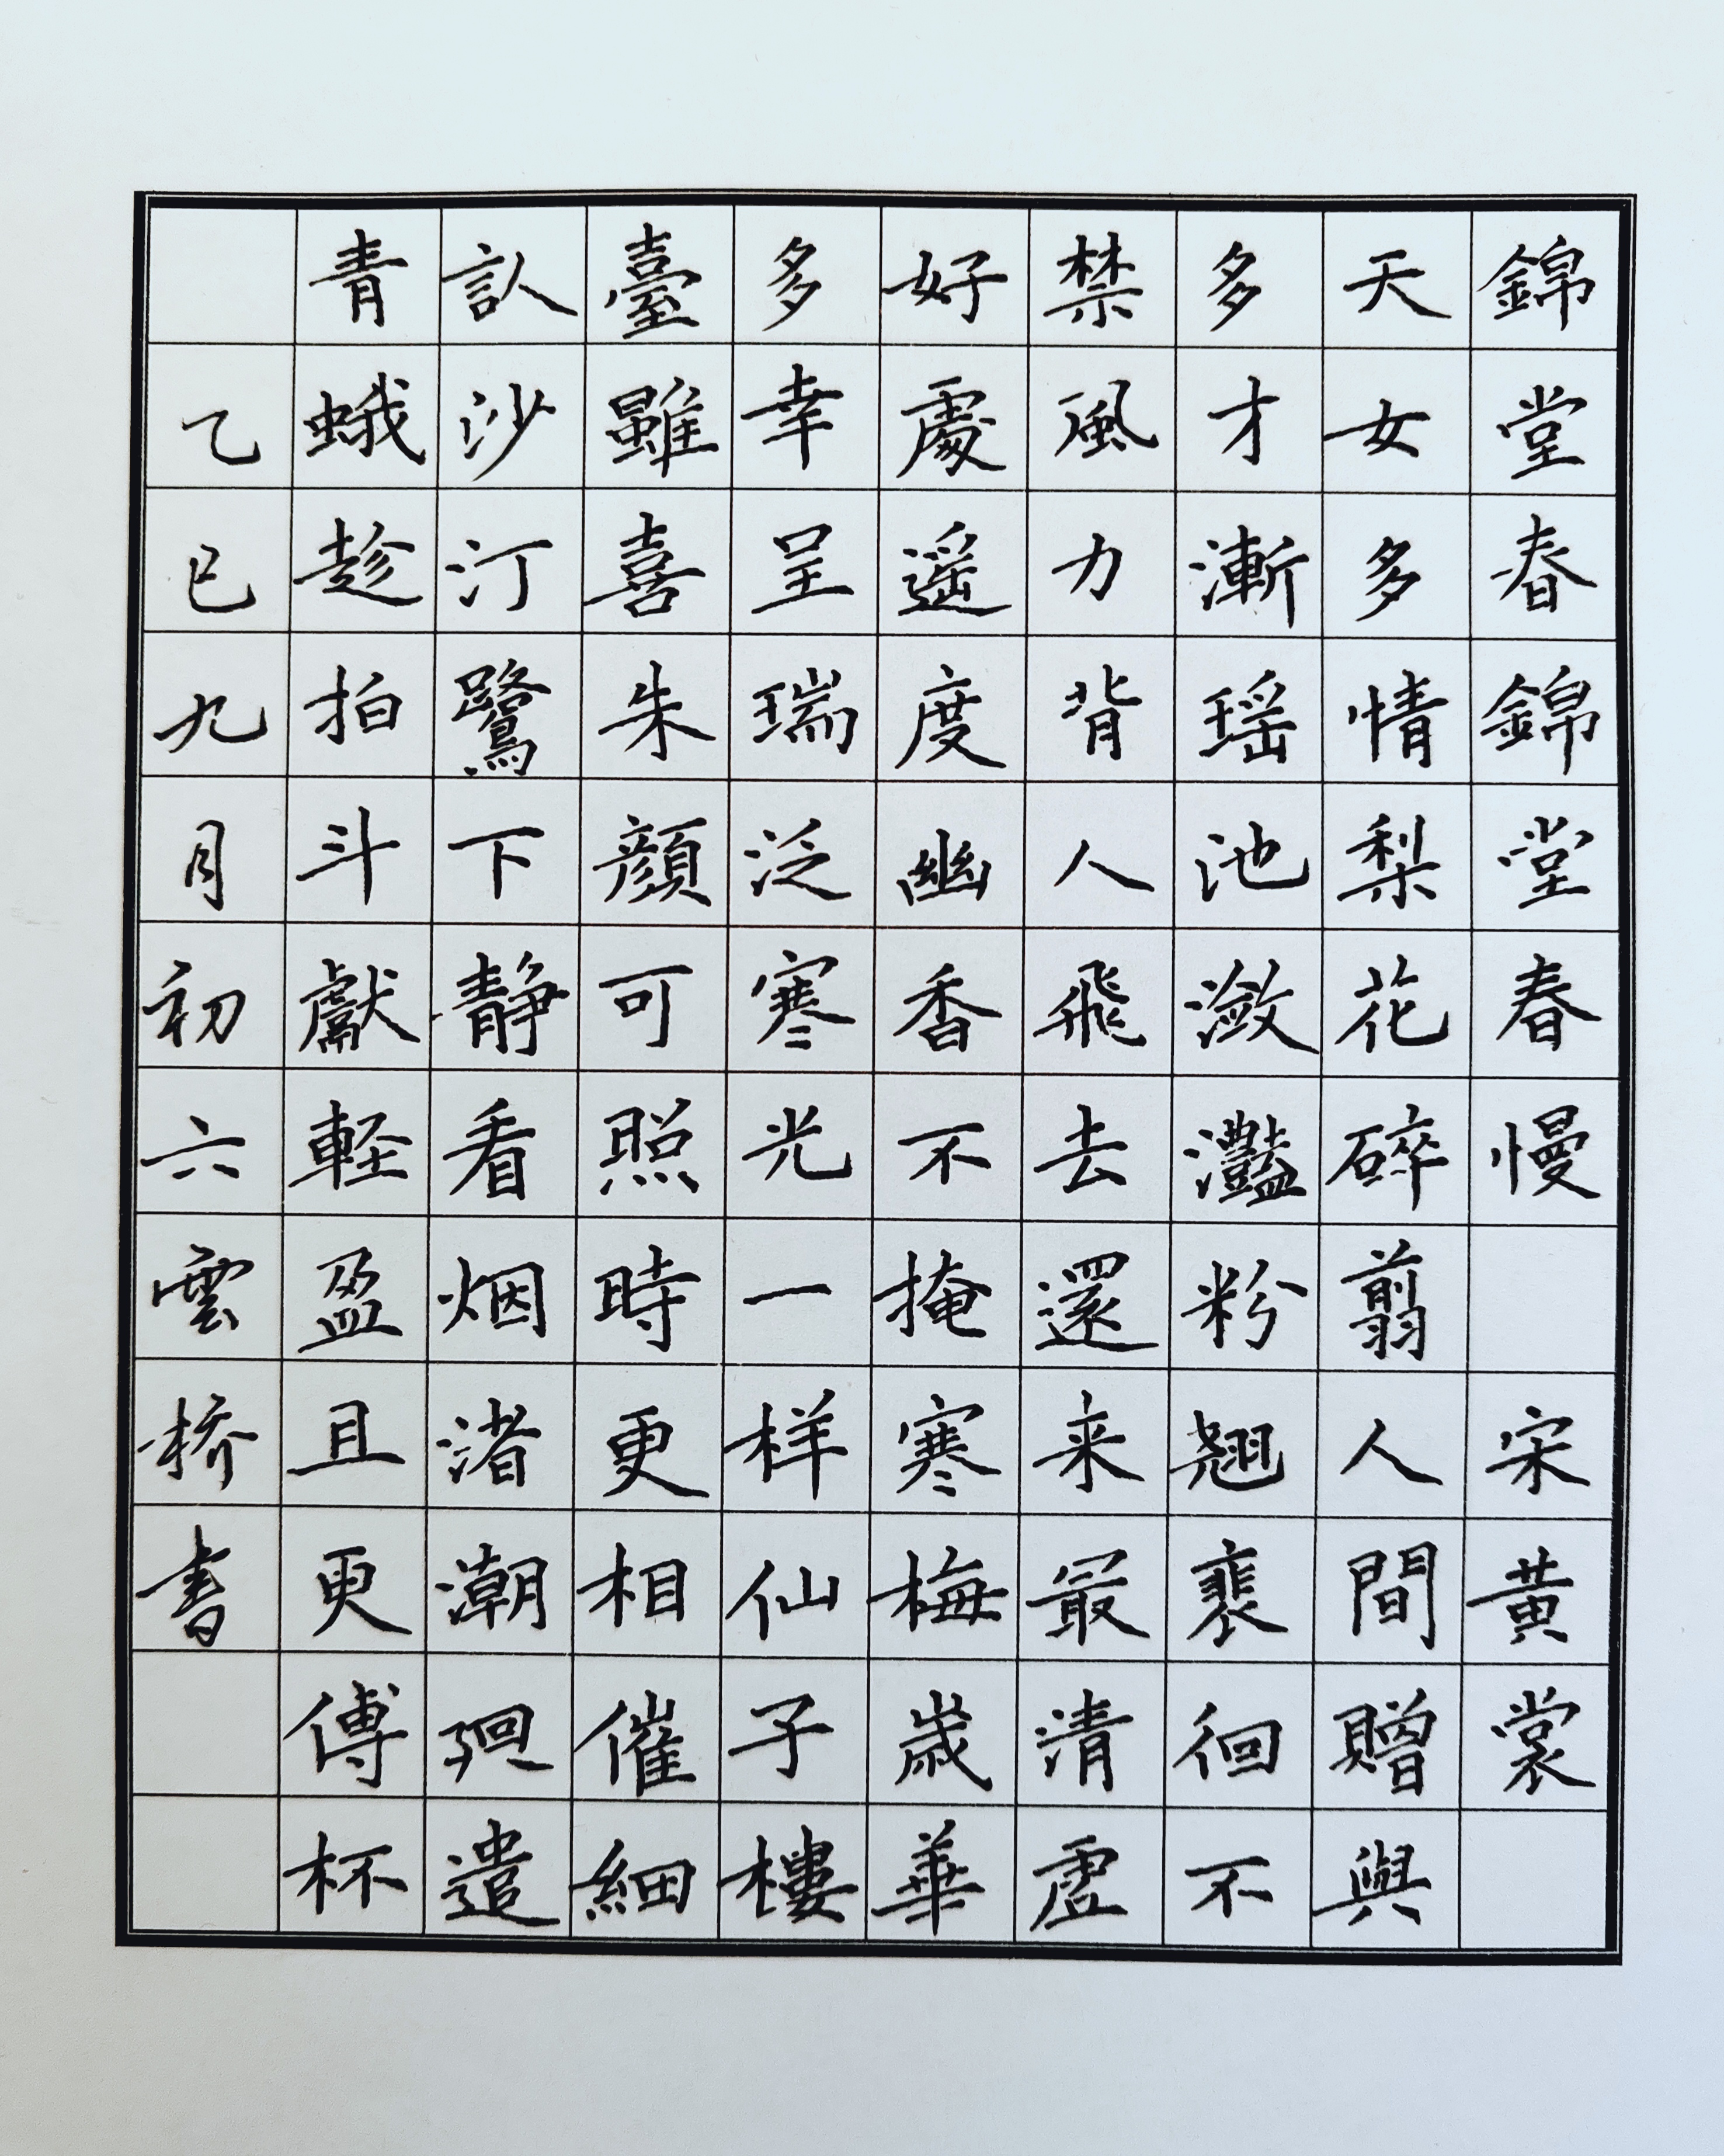 錦堂春錦堂春慢 宋黃裳
天女多情梨花碎翦人間贈與
多才漸瑶池潋灩粉翘裵徊不
禁風力背人飛去還来最清虛
好處遥度幽香不掩寒梅歲華
多幸呈瑞泛寒光一样仙子樓
臺雖喜朱顔可照時更相催細
訙沙汀鷺下静看烟渚潮廻遣
青蛾趁拍斗獻軽盈且更傳杯
乙巳九月初六雲桥書